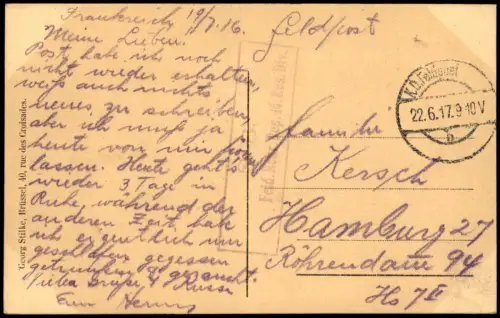 Frankreich 19/7.16.
Meine Lieben.
Post habe ich noch
nicht wieder erhalten,
weiß auch nichts
neues zu schreiben,
aber ich muß ja
heute von mir hören
lassen. Heute geht's
wieder 3 Tage in
Ruhe, während der
anderen Zeit hab
ich eigentlich nur
geschlafen gegessen
getrunken & geraucht.
Grüße & Küsse
Euer
Feldpost
Familie
Kersch
Hamburg 27
Röhrendamm 94
Hs 7 II
K.D. Feldpost
22.6.17. 9-10V
b
Georg Stilke, Brüssel, 40, rue des Croisades.